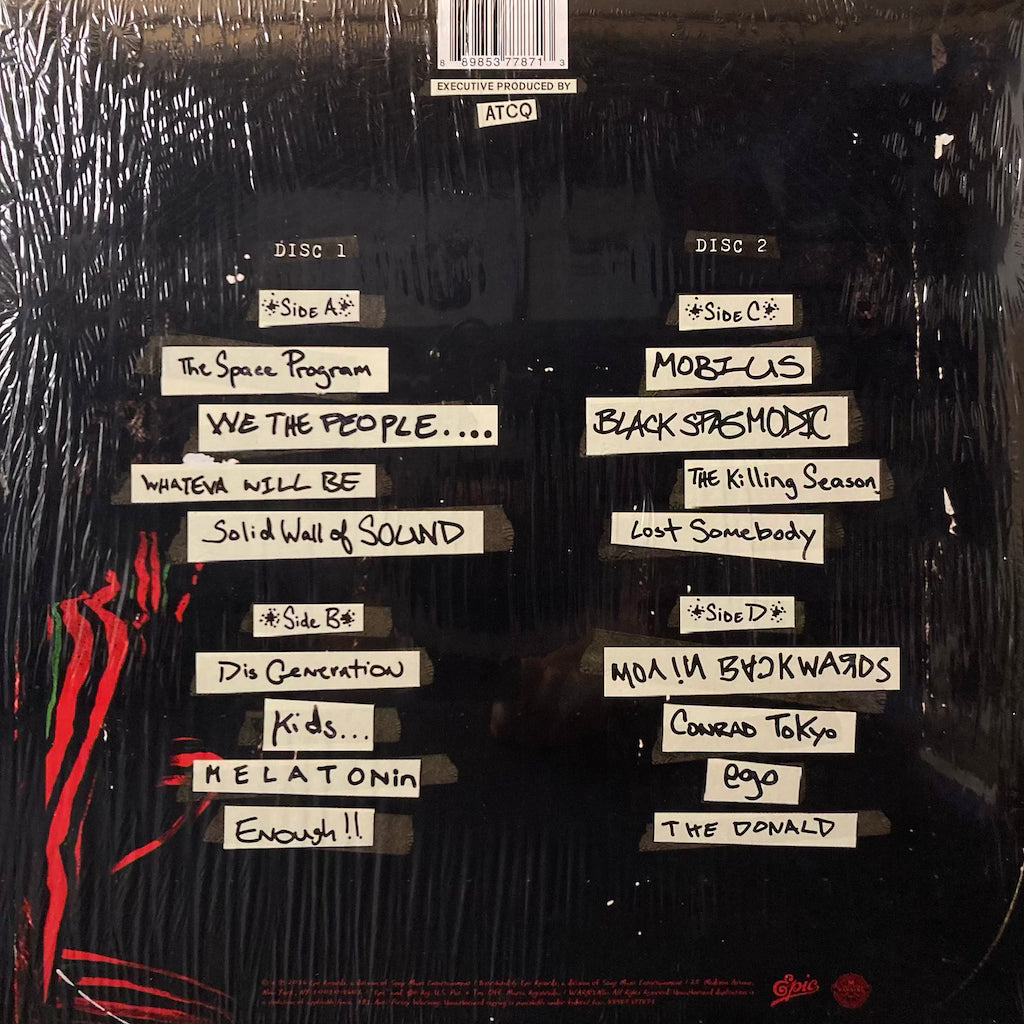 8 89853 77871 3
EXECUTIVE PRODUCED BY
ATCQ
DISC 1
Side A
The Space Program
WE THE PEOPLE....
WHATEVA WILL BE
Solid Wall of SOUND
Side B
Dis Generation
Kids...
MELATONin
Enough!!
DISC 2
Side C
MOBIUS
BLACK SPASMODIC
THE Killing Season
Lost Somebody
Side D
MOV!N BACKWARDS
CONRAD TOKYO
ego
THE DONALD
Epic